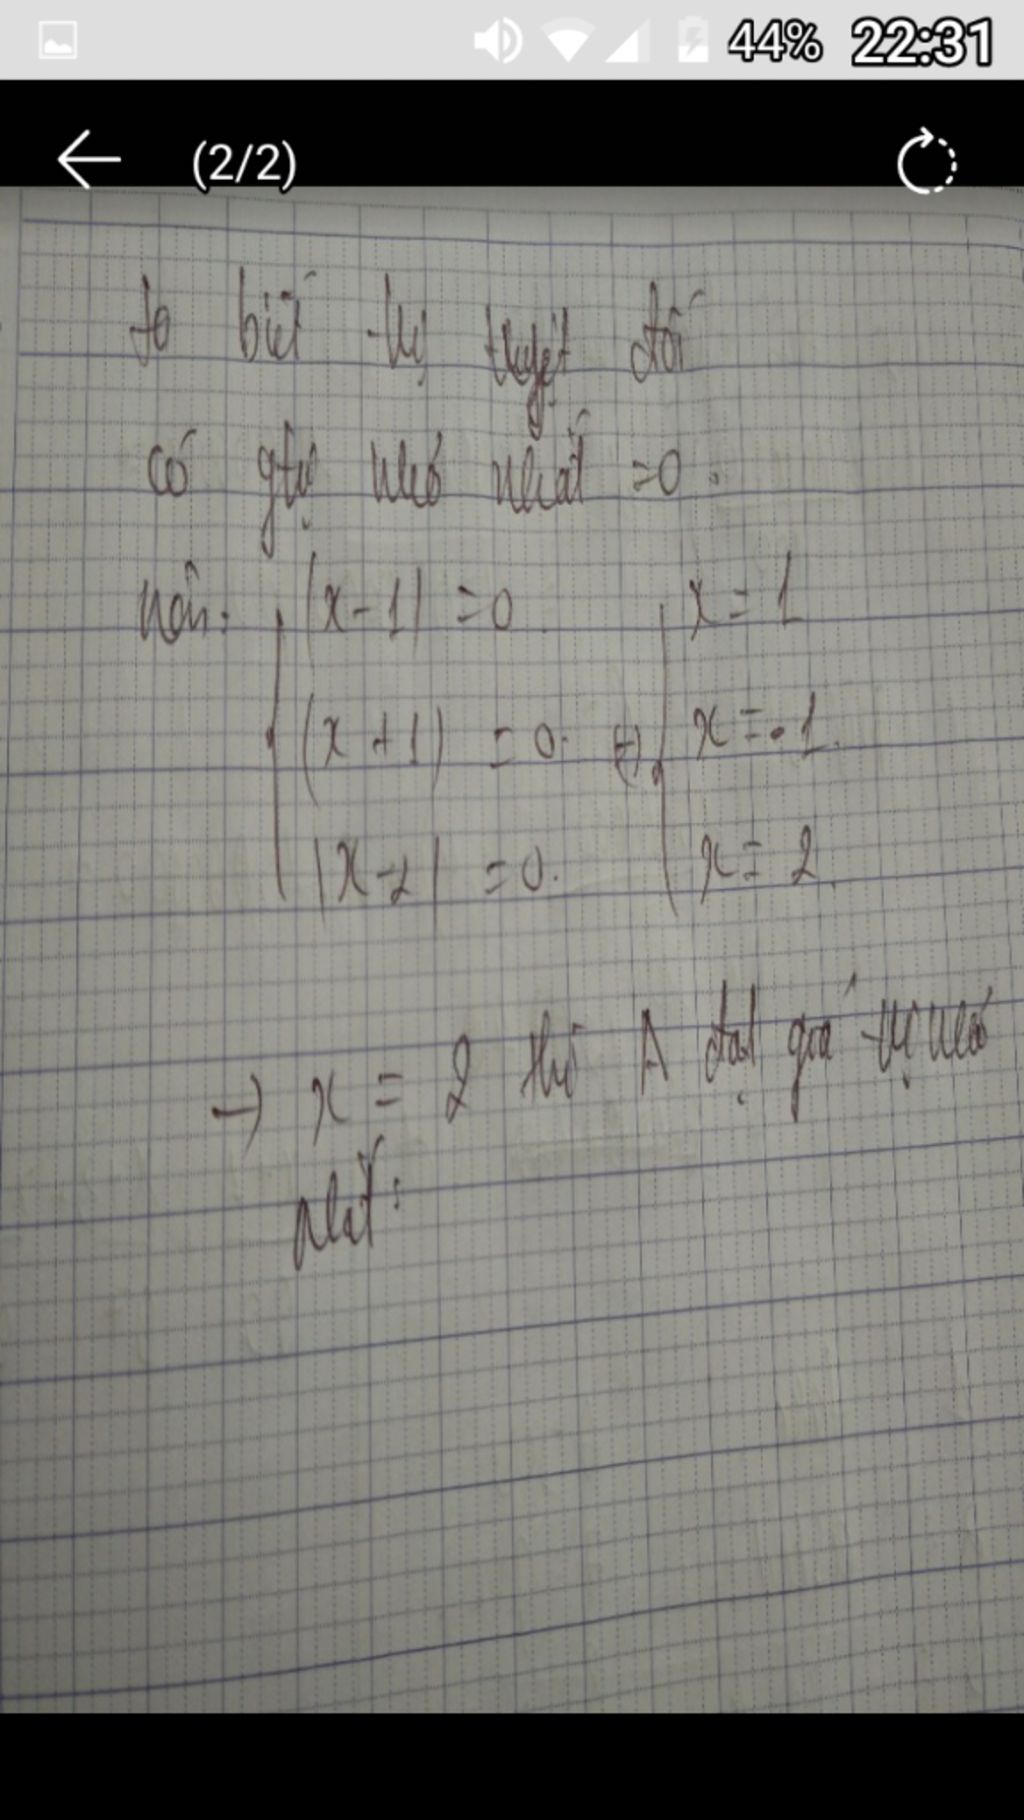 44% 22:31
(2/2)
ta biết trị tuyệt đối
có gtrị nhỏ nhất =0.
nên: |x-1| =0 x=1
(x+1) =0. (=) x=-1.
|x-2| =0. x=2
→ x=2 thì A đạt giá trị nhỏ
nhất: